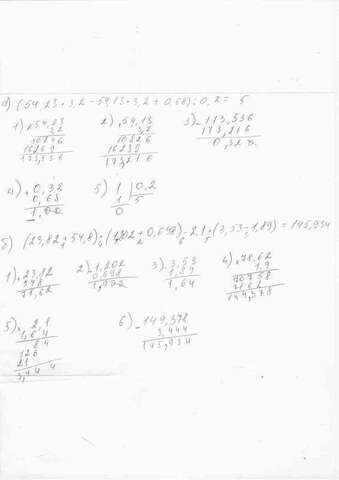 а) (54,23 · 3,2 - 54,13 · 3,2 + 0,68) : 0,2 = 5
1) × 54,23 2) × 54,13 3) - 173,536
3,2 3,2 173,216
10846 10826 0,320
16269 16239
173,536 173,216
4) + 0,32 5) 1 | 0,2
0,68 1 5
1,00 0
б) (23,82 + 54,8) · (1,202 + 0,698) - 2,1 · (3,53 - 1,89) = 145,934
1) + 23,82 2) + 1,202 3) - 3,53 4) × 78,62
54,8 0,698 1,89 1,9
78,62 1,900 1,64 70758
7862
149,378
5) × 2,1 6) - 149,378
1,64 3,444
84 145,934
126
21
3,444